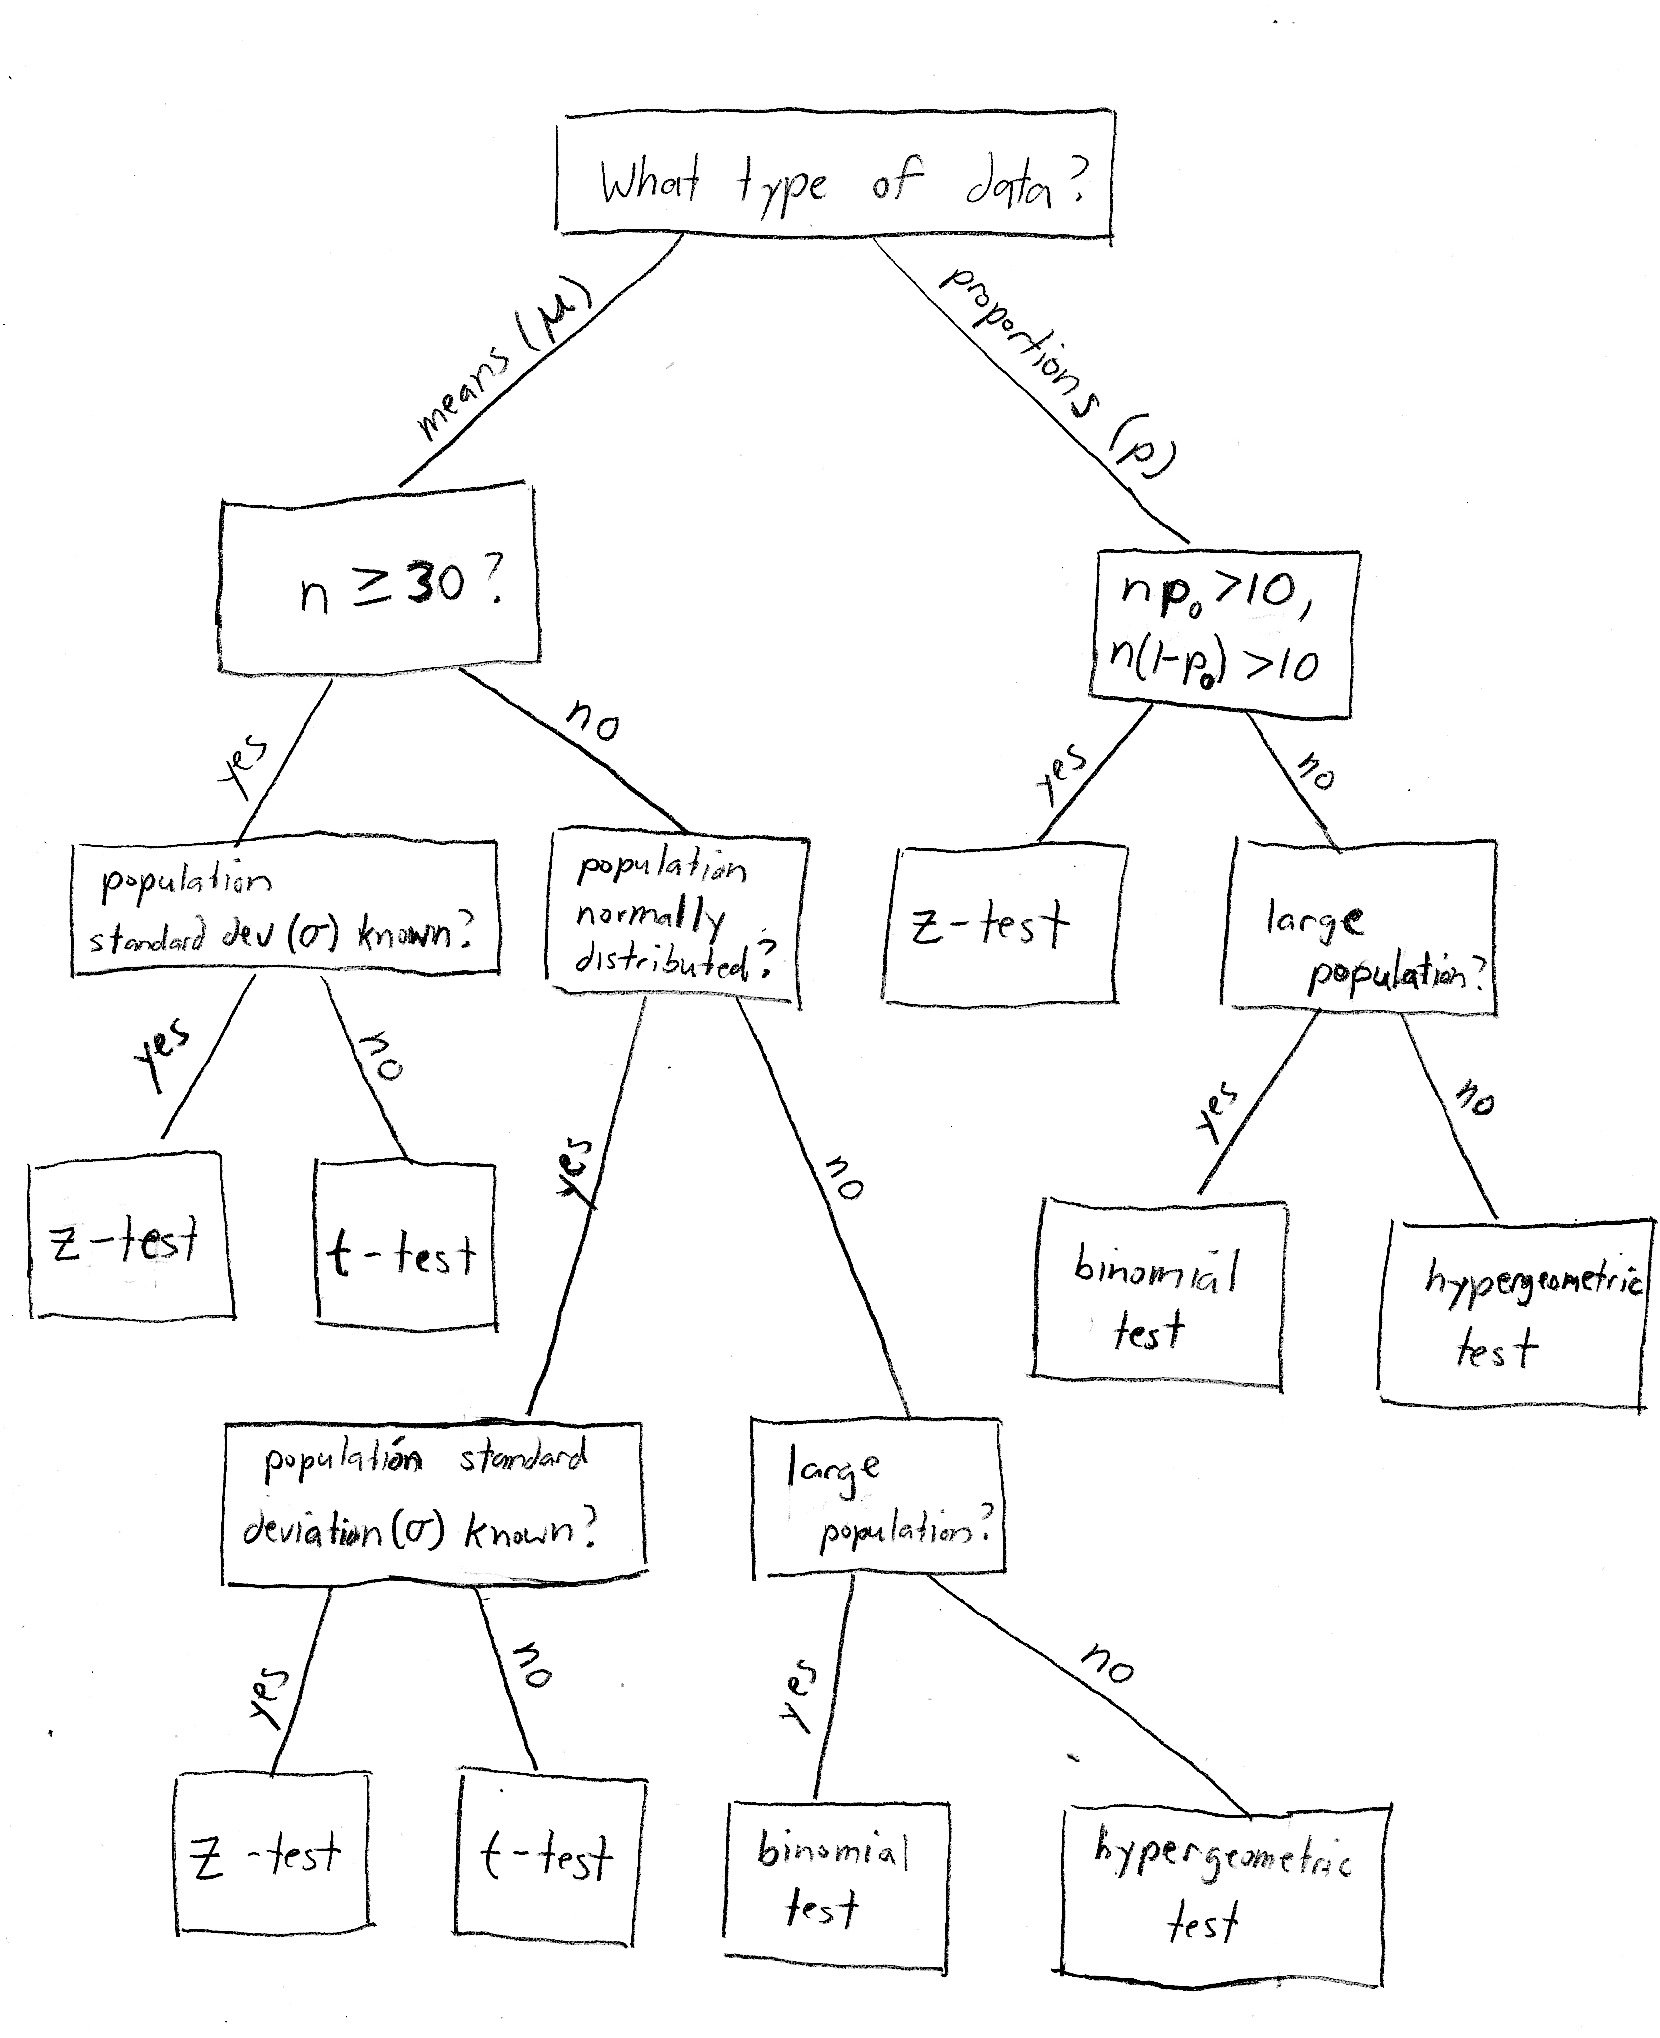 What type of data?
means (μ)
proportions (p)
n ≥ 30?
np₀ >10,
n(1-p₀) >10
yes
no
yes
no
population
standard dev (σ) known?
population
normally
distributed?
z-test
large
population?
yes
no
yes
no
yes
no
z-test
t-test
binomial
test
hypergeometric
test
population standard
deviation (σ) known?
large
population?
yes
no
yes
no
z-test
t-test
binomial
test
hypergeometric
test